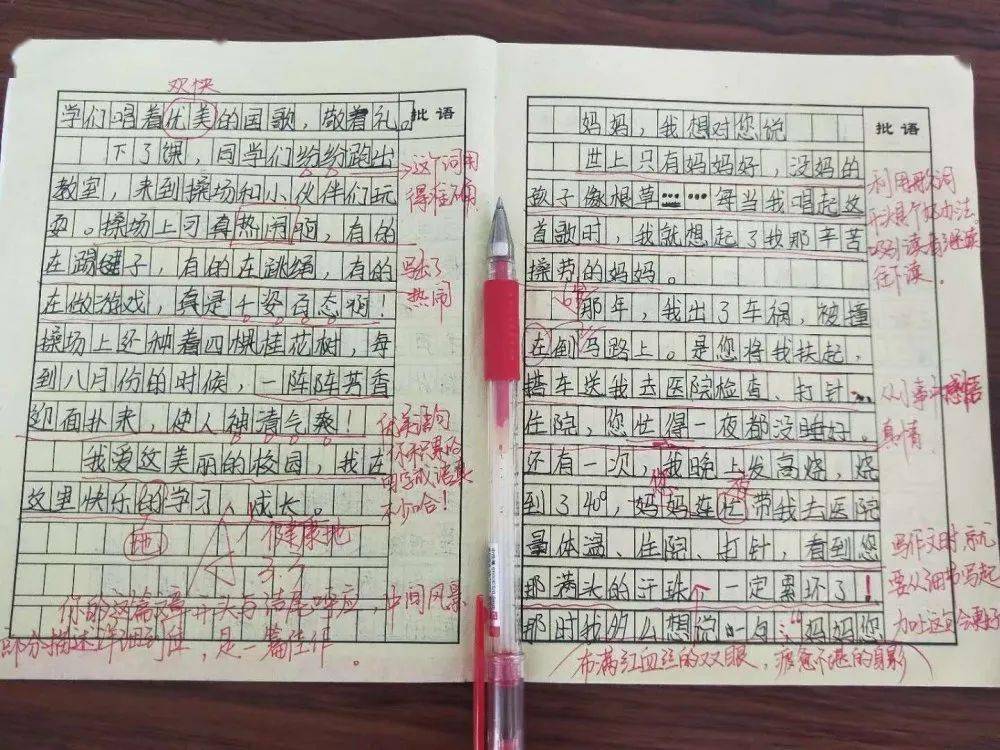 欢快
学们唱着优美的国歌，敬着礼。
批语
下了课，同学们纷纷跑出
教室，来到操场和小伙伴们玩
耍。操场上可真热闹啊，有的
在踢毽子，有的在跳绳，有的
在做游戏，真是千姿百态啊！
操场上还种着四棵桂花树，每
到八月份的时候，一阵阵芳香
迎面扑来，使人神清气爽！
我爱这美丽的校园，我在
这里快乐的学习、成长。
这个词用
得准确
写出了
热闹
优美语句
你积累的
四字成语真
不少哈！
地
健康地
你的这篇文章开头与结尾呼应，中间风景
部分描述详细到位，是一篇佳作。
妈妈，我想对您说
批语
世上只有妈妈好，没妈的
孩子像根草……每当我唱起这
首歌时，我就想起了我那辛苦
操劳的妈妈。
那年，我出了车祸，被撞
在倒马路上。是您将我扶起，
搭车送我去医院检查、打针、
住院，您忙得一夜都没睡好。
还有一次，我晚上发高烧，烧
到了40°，妈妈连忙带我去医院
量体温、住院、打针，看到您
那满头的汗珠，一定累坏了！
那时我多么想说一句：“妈妈您
利用歌词
开头是个好办法
吸引读者继续
往下读。
从小事中感悟
真情
您
写作文时，就
要从细节写起
加上这句会更好
（布满红血丝的双眼，疲惫不堪的身影）